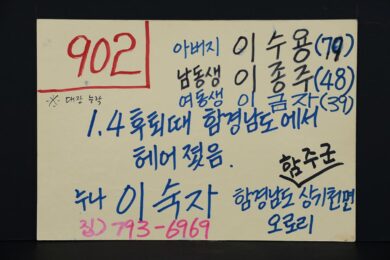 902
※ 대장 누락
아버지 이 수 용 (79)
남동생 이 종 주 (48)
여동생 이 금 자 (39)
1.4 후퇴때 함경남도에서
헤어졌음.
함주군
누나 이 숙자 함경남도 상기천면
오로리
집) 793-6969